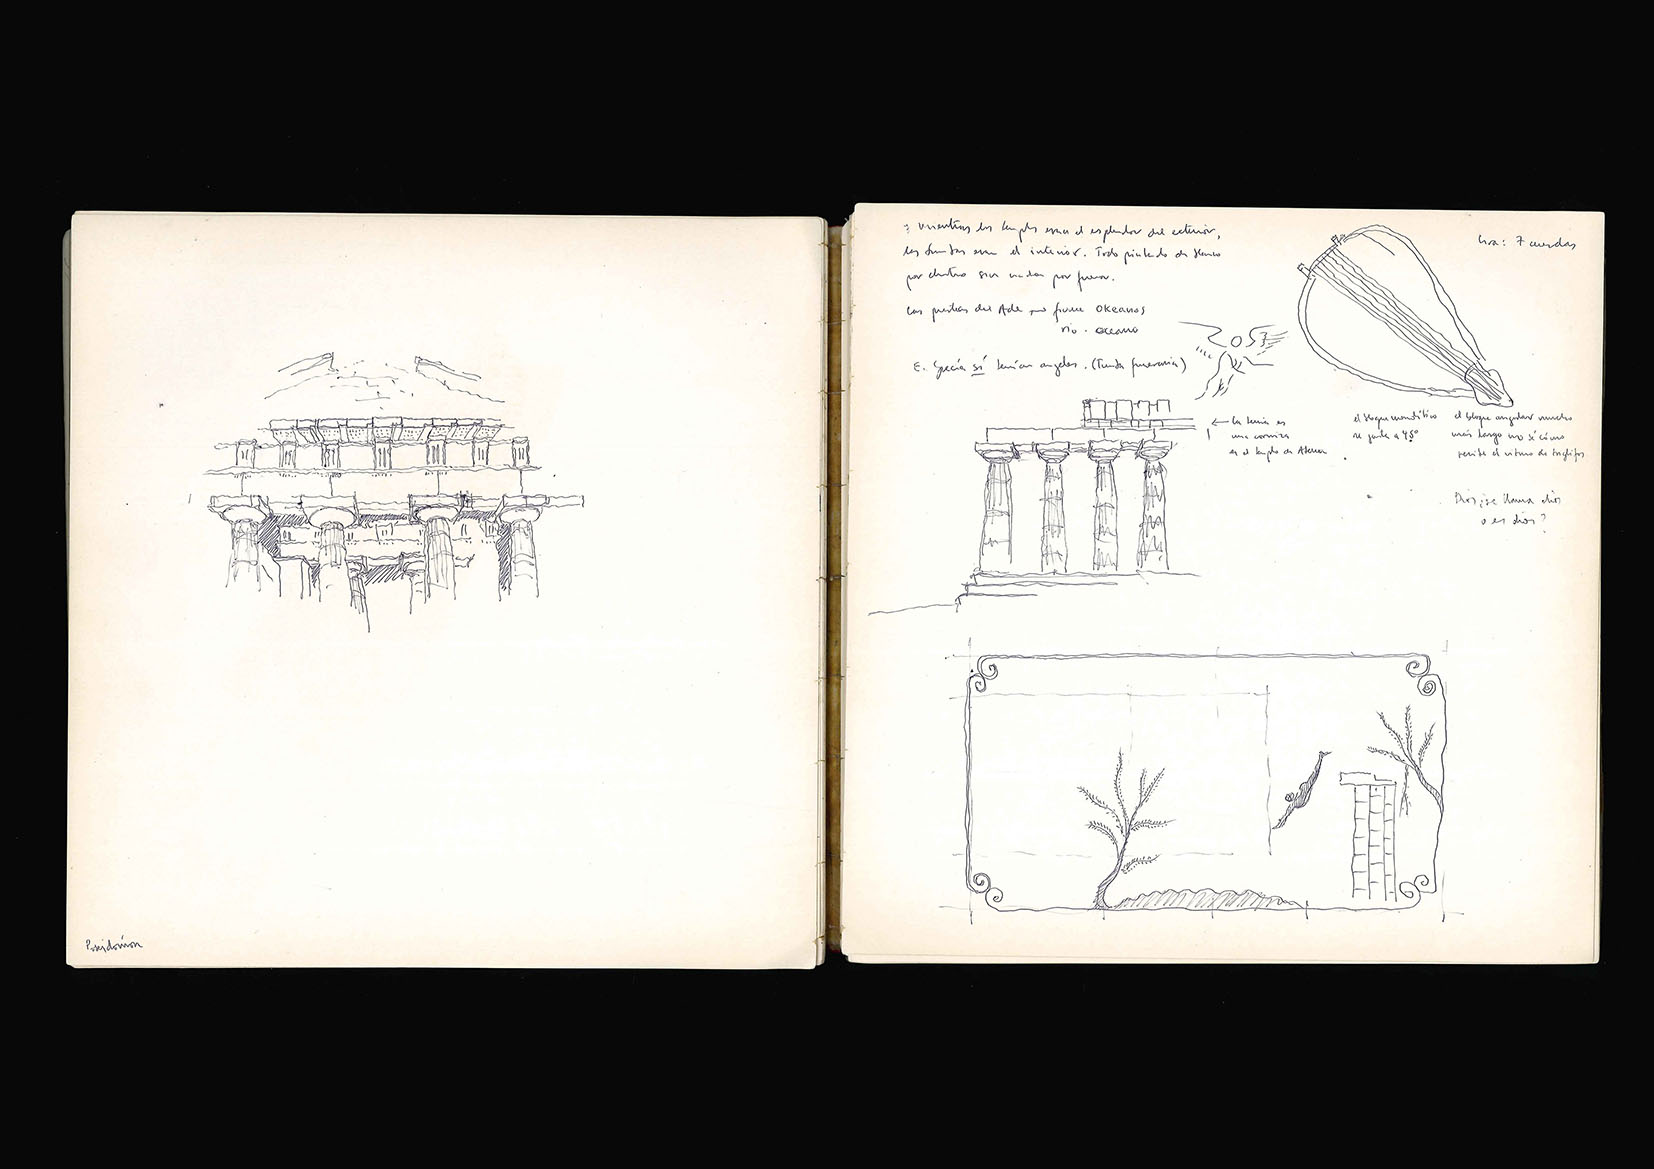 Poseidonion
mientras los templos eran el esplendor del exterior,
las tumbas eran el interior. Todo pintado de blanco
por dentro sin nadas por fuera.
Las puertas del Ade no fueron OKEANOS
río · oceano
E. Grecia sí tenían angeles. (Tumba funeraria)
lira: 7 cuerdas
← La tenia es
una cornisa
en el templo de Atenea
el bloque monolítico
se junta a 45º
el bloque angular mucho
más largo no sé cómo
permite el ritmo de triglifos
Dios ¿se llama dios
o es dios?